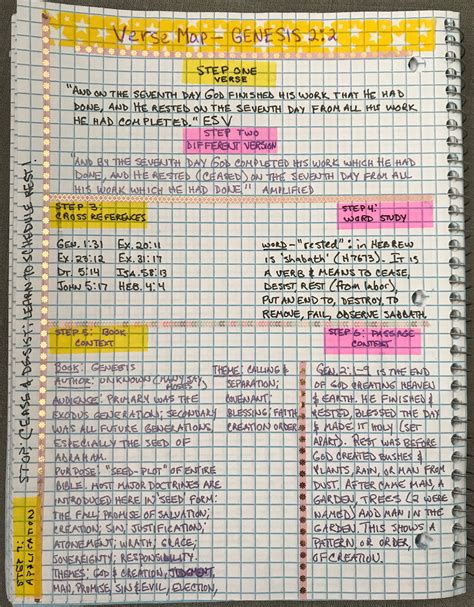 Verse Map - GENESIS 2:2
STEP ONE
VERSE
"AND ON THE SEVENTH DAY GOD FINISHED HIS WORK THAT HE HAD
DONE, AND HE RESTED ON THE SEVENTH DAY FROM ALL HIS WORK
HE HAD COMPLETED." ESV
STEP TWO
DIFFERENT VERSION
"AND BY THE SEVENTH DAY GOD COMPLETED HIS WORK WHICH HE HAD
DONE, AND HE RESTED (CEASED) ON THE SEVENTH DAY FROM ALL
HIS WORK WHICH HE HAD DONE" AMPLIFIED
STEP 3:
CROSS REFERENCES
GEN. 1:31 EX. 20:11
EX. 23:12 EX. 31:17
DT. 5:14 ISA. 58:13
JOHN 5:17 HEB. 4:4
STEP 4:
WORD STUDY
WORD - "rested": in HEBREW
is 'shabath' (H7673). IT IS
A VERB & MEANS TO CEASE,
DESIST, REST (from labor),
PUT AN END TO, DESTROY, TO
REMOVE, FAIL, OBSERVE SABBATH.
STEP 5: BOOK
CONTEXT
BOOK: GENESIS
AUTHOR: UNKNOWN (MANY SAY
MOSES)
AUDIENCE: PRIMARY WAS THE
EXODUS GENERATION; SECONDARY
WAS ALL FUTURE GENERATIONS,
ESPECIALLY THE SEED OF
ABRAHAM.
PURPOSE: "SEED-PLOT" OF ENTIRE
BIBLE. MOST MAJOR DOCTRINES ARE
INTRODUCED HERE IN "SEED" FORM:
THE FALL, PROMISE OF SALVATION;
CREATION; SIN; JUSTIFICATION;
ATONEMENT; WRATH; GRACE;
SOVEREIGNTY; RESPONSIBILITY.
THEMES: GOD & CREATION, JUDGMENT,
MAN, PROMISE SIN & EVIL, ELECTION,
THEME: CALLING &
SEPARATION;
COVENANT,
BLESSING; FAITH
CREATION ORDER
STEP 6: PASSAGE
CONTEXT
GEN. 2:1-9 IS THE END
OF GOD CREATING HEAVEN
& EARTH. HE FINISHED &
RESTED, BLESSED THE DAY
& MADE IT HOLY (SET
APART). REST WAS BEFORE
GOD CREATED BUSHES &
PLANTS, RAIN, OR MAN FROM
DUST. AFTER CAME MAN, A
GARDEN, TREES (2 WERE
NAMED) AND MAN IN THE
GARDEN. THIS SHOWS A
PATTERN OR ORDER,
OF CREATION.
STEP 7:
APPLICATION
STOP; CEASE & DESIST; LEARN TO SCHEDULE REST!